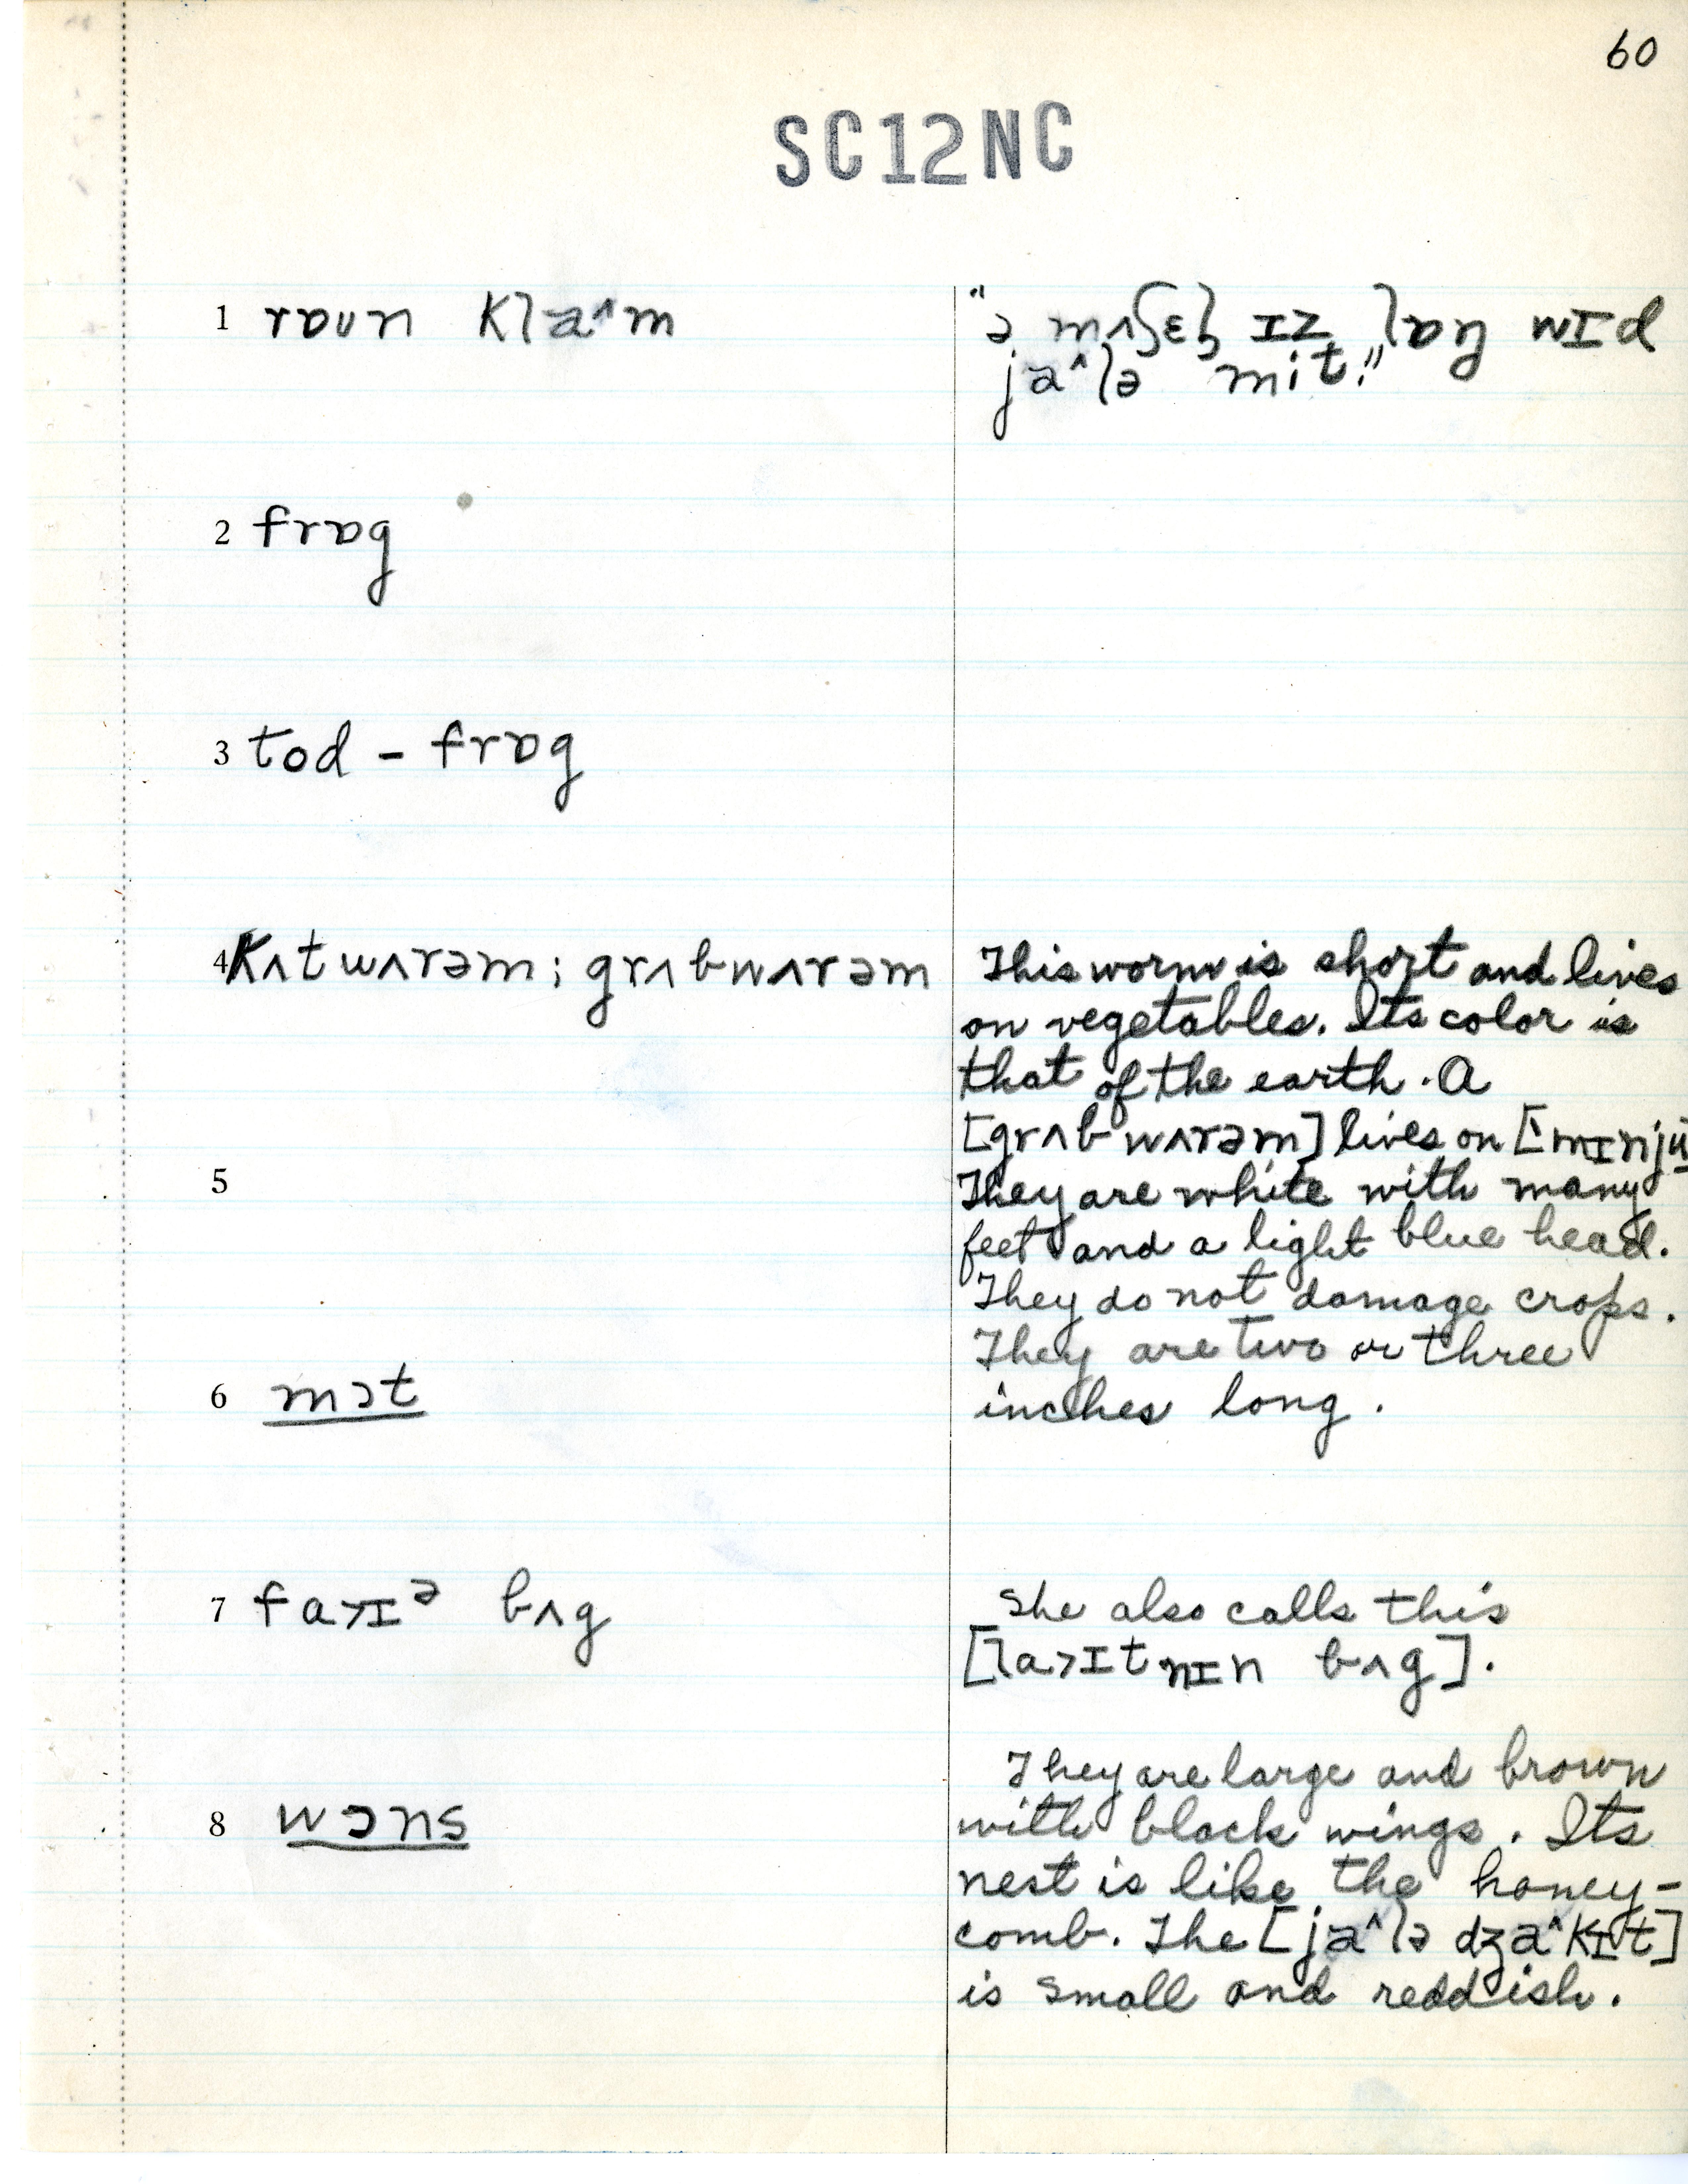 60
SC12NC
1 rɒʊn klaˆm
"ə mʌʃɛl ɪz lɒŋ wɪd
jaˆlə mit."
2 frɒg
3 tod - frɒg
4 kʌtwʌrəm; grʌbwʌrəm
This worm is short and lives
on vegetables. Its color is
that of the earth. A
[grʌbwʌrəm] lives on
5
They are white with many
feet and a light blue head.
They do not damage crops.
They are two or three
6 mɔt
inches long.
7 fa>ɪᵊ bʌg
She also calls this
[la>ɪtnɪn bʌg].
They are large and brown
8 wɔns
with black wings. Its
nest is like the honey-
comb. The [jaˆlə dʒaˆkɪt]
is small and reddish.